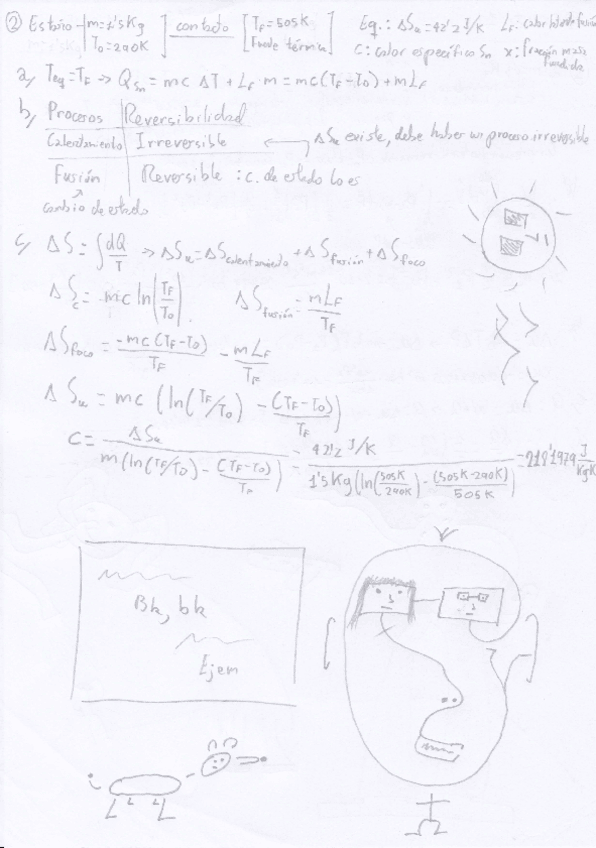 ② Estaño m=1'5Kg T₀=290K contacto T_F=505K Fuente térmica Eq.: ΔSu=42'2 J/K L_F: calor latente fusión
c: calor específico Sn x: fracción masa fundida
a) Teq=T_F => Q_Sn = mc ΔT + L_F m = mc(T_F-T₀)+mL_F
b) Procesos Reversibilidad
Calentamiento Irreversible ← ΔSu existe, debe haber un proceso irreversible
Fusión Reversible : c. de estado lo es
cambio de estado
c) ΔS=∫dQ/T => ΔSu=ΔScalentamiento + ΔSfusión + ΔSfoco
ΔSc = mc ln|T_F/T₀| ΔSfusión = mL_F/T_F
ΔSfoco = -mc(T_F-T₀)/T_F - mL_F/T_F
ΔSu = mc (ln(T_F/T₀) - (T_F-T₀)/T_F)
c = ΔSu/m(ln(T_F/T₀) - (T_F-T₀)/T_F) = 42'2 J/K/1'5Kg(ln(505K/290K) - (505K-290K)/505K) = 218'1979 J/KgK
Bk, bk
Ejem